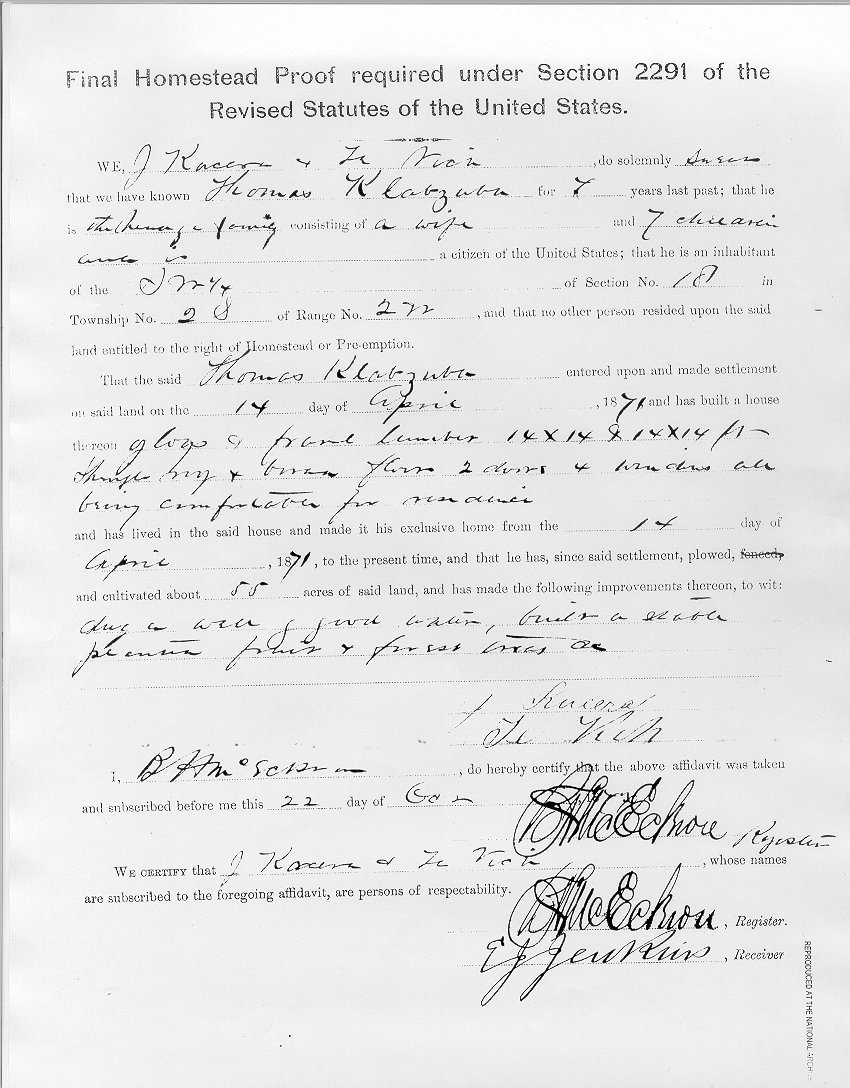 Final Homestead Proof required under Section 2291 of the
Revised Statutes of the United States.
WE, J Kocera & Fr Vich, do solemnly swear
that we have known Thomas Klabzuba for 7 years last past; that he
is the head of a family consisting of a wife and 7 children
and is a citizen of the United States; that he is an inhabitant
of the of Section No. 18 in
Township No. 2 of Range No. 2, and that no other person resided upon the said
land entitled to the right of Homestead or Pre-emption.
That the said Thomas Klabzuba entered upon and made settlement
on said land on the 14 day of April, 1871, and has built a house
thereon of logs & frame lumber 14X14 & 14X14 ft
floors 2 doors 4 windows
being comfortable for residence
and has lived in the said house and made it his exclusive home from the 14 day of
April, 1871, to the present time, and that he has, since said settlement, plowed, fenced,
and cultivated about 55 acres of said land, and has made the following improvements thereon, to wit:
dug a well of good water, built a stable
planted fruit & forest trees &c
J Kucera
Fr Vich
I, B H McEckron, do hereby certify that the above affidavit was taken
and subscribed before me this 22 day of
B H McEckron Register
WE CERTIFY that J Kocera & Fr Vich, whose names
are subscribed to the foregoing affidavit, are persons of respectability.
B H McEckron, Register.
E J Jenkins, Receiver
REPRODUCED AT THE NATIONAL